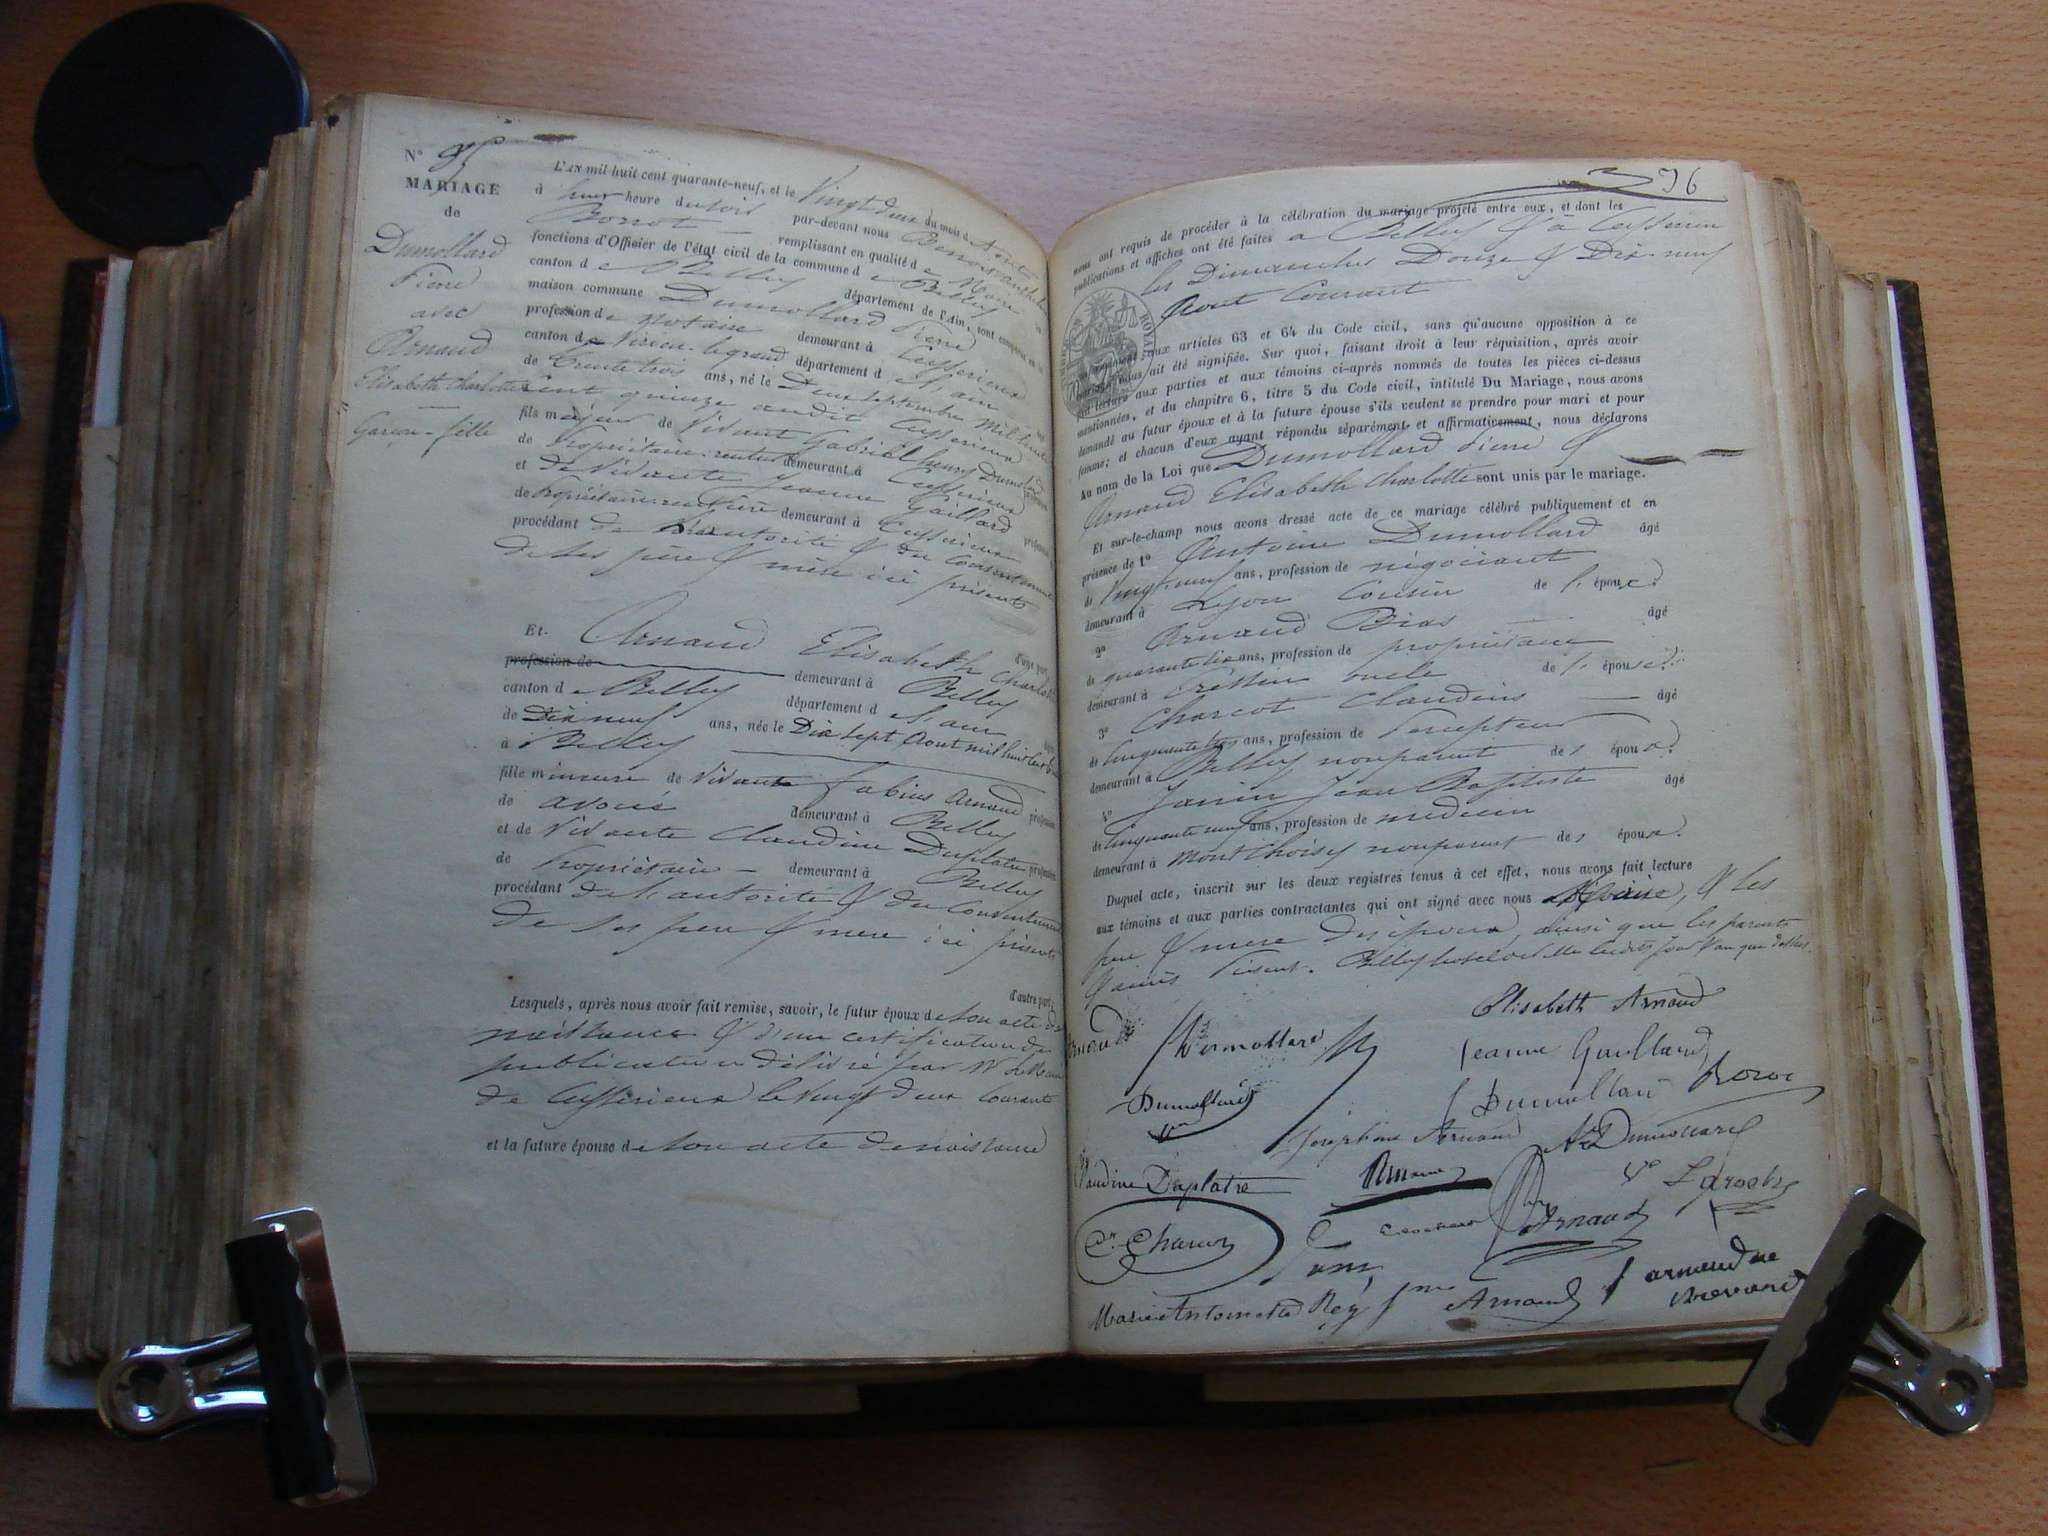 N° 95
MARIAGE
de
Dumollard
Pierre
avec
Arnaud
Elisabeth Charlotte
Garçon - fille
L'AN mil huit cent quarante-neuf, et le Vingt deux du mois d'Aout
à heure du soir par-devant nous
Borrot remplissant en qualité de Maire
fonctions d'Officier de l'état civil de la commune de Belley
canton de Belley département de l'Ain, sont comparus en la
maison commune Dumollard Pierre
profession de Notaire demeurant à Ceyzerieux
canton de Virieu-le-grand département de l'ain
de trente trois ans, né le Deux Septembre mil huit
cent quinze audit Ceyzerieux
fils majeur de Vivant Gabriel henry Dumollard
de Propriétaire-rentier demeurant à Ceyzerieux
et de Vivante Jeanne Gaillard
de Propriétaire-rentière demeurant à Ceyzerieux
procédant de l'autorité & du Consentement
de ses père & mère ici présents
d'une part
Et Arnaud Elisabeth Charlotte
profession de demeurant à Belley
canton de Belley département de l'ain
de Dix neuf ans, née le Dix sept Aout mil huit cent
à Belley
fille mineure de Vivant fabius Arnaud profession
de avoué demeurant à Belley
et de Vivante Claudine Duplatre profession
de Propriétaire demeurant à Belley
procédant de l'autorité & du Consentement
de ses pere & mere ici présents
d'autre part;
Lesquels, après nous avoir fait remise, savoir, le futur époux de son acte de
naissance & d'un certificat de
publication délivré par Mr le Maire
de Ceyzerieux le vingt deux Courant
et la future épouse de son acte de naissance
96
nous ont requis de procéder à la célébration du mariage projeté entre eux, et dont les
publications et affiches ont été faites a Belley & à Ceyzerieux
les Dimanches Douze & Dix-neuf
Aout Courant
aux articles 63 et 64 du Code civil, sans qu'aucune opposition à ce
mariage nous ait été signifiée. Sur quoi, faisant droit à leur réquisition, après avoir
fait lecture aux parties et aux témoins ci-après nommés de toutes les pièces ci-dessus
mentionnées, et du chapitre 6, titre 5 du Code civil, intitulé Du Mariage, nous avons
demandé au futur époux et à la future épouse s'ils veulent se prendre pour mari et pour
femme; et chacun d'eux ayant répondu séparément et affirmativement, nous déclarons
Au nom de la Loi que Dumollard Pierre &
Arnaud Elisabeth Charlotte sont unis par le mariage.
Et sur-le-champ nous avons dressé acte de ce mariage célébré publiquement et en
présence de 1° Antoine Dumollard âgé
de Vingt-neuf ans, profession de négociant
demeurant à Lyon Cousin de l' époux
2° Arnaud Bias âgé
de quarante six ans, profession de propriétaire
demeurant à Cressin oncle de l' épouse
3° Charcot Claudius âgé
de Cinquante trois ans, profession de Percepteur
demeurant à Belley non parent des époux
4° Janin Jean Baptiste âgé
de Cinquante neuf ans, profession de médecin
demeurant à Montchoisy non parent des époux
Duquel acte, inscrit sur les deux registres tenus à cet effet, nous avons fait lecture
aux témoins et aux parties contractantes qui ont signé avec nous Maire, & les
pere & mere des époux, ainsi que les parents
& amis Présents. Belley hotel de ville les dits jour & an que dessus.
Elisabeth Arnaud
Arnaud
Dumollard
Jeanne Gaillard
Dumollard
Dumollard
Josephine Arnaud
Ate Dumollard
Claudine Duplatre
Arnaud
Ve Laroche
Cs Charcot
Janin
Arnaud
Marie Antoinette Rey fme Arnaud
arnaud ne